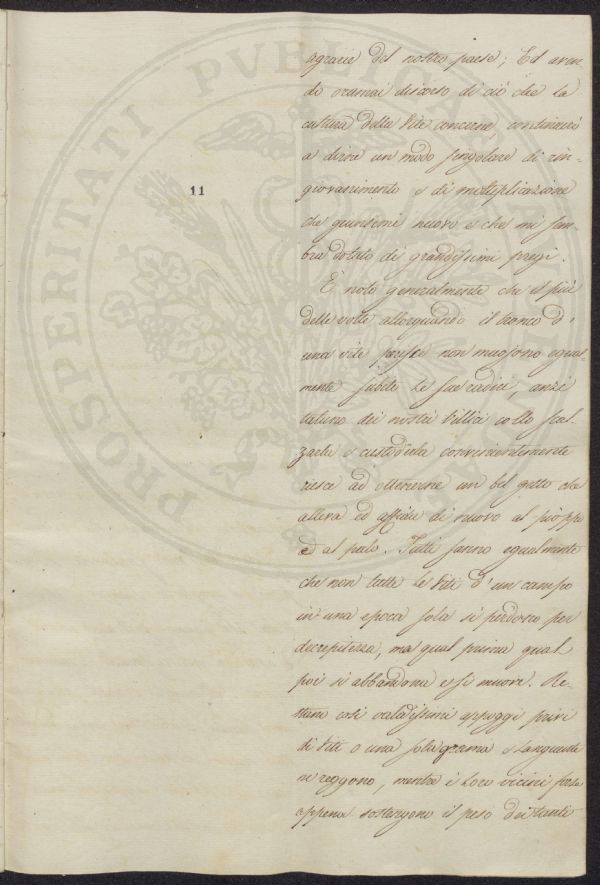 11
agrarie del nostro paese; Ed aven-
do oramai discorso di ciò che la
cultura della Vite concerne, continuerò
a dirvi un modo singolare di rin-
giovanimento e di moltiplicazione
che e che mi sem-
bra dotato di grandissimi pregi.
È noto generalmente che il più
delle volte allorquando il tronco d'
una vite perisce non muojono egual-
mente subito le sue radici, anzi
taluno dei nostri Villici collo scal-
zarla e custodirla convenientemente
riesce ad ottenerne un bel getto che
alleva ed affida di nuovo al pioppo
o al palo. Tutti sanno egualmente
che non tutte le Viti d'un campo
in una epoca sola si perdono per
decrepitezza, ma qual prima qual
poi si abbandona e si muore. Re-
stano così validissimi appoggi privi
di Viti o una sola grama e languente
ne reggono, mentre i loro vicini forse
appena sostengono il peso dei tanti
PROSPERITATI PVBLICAE